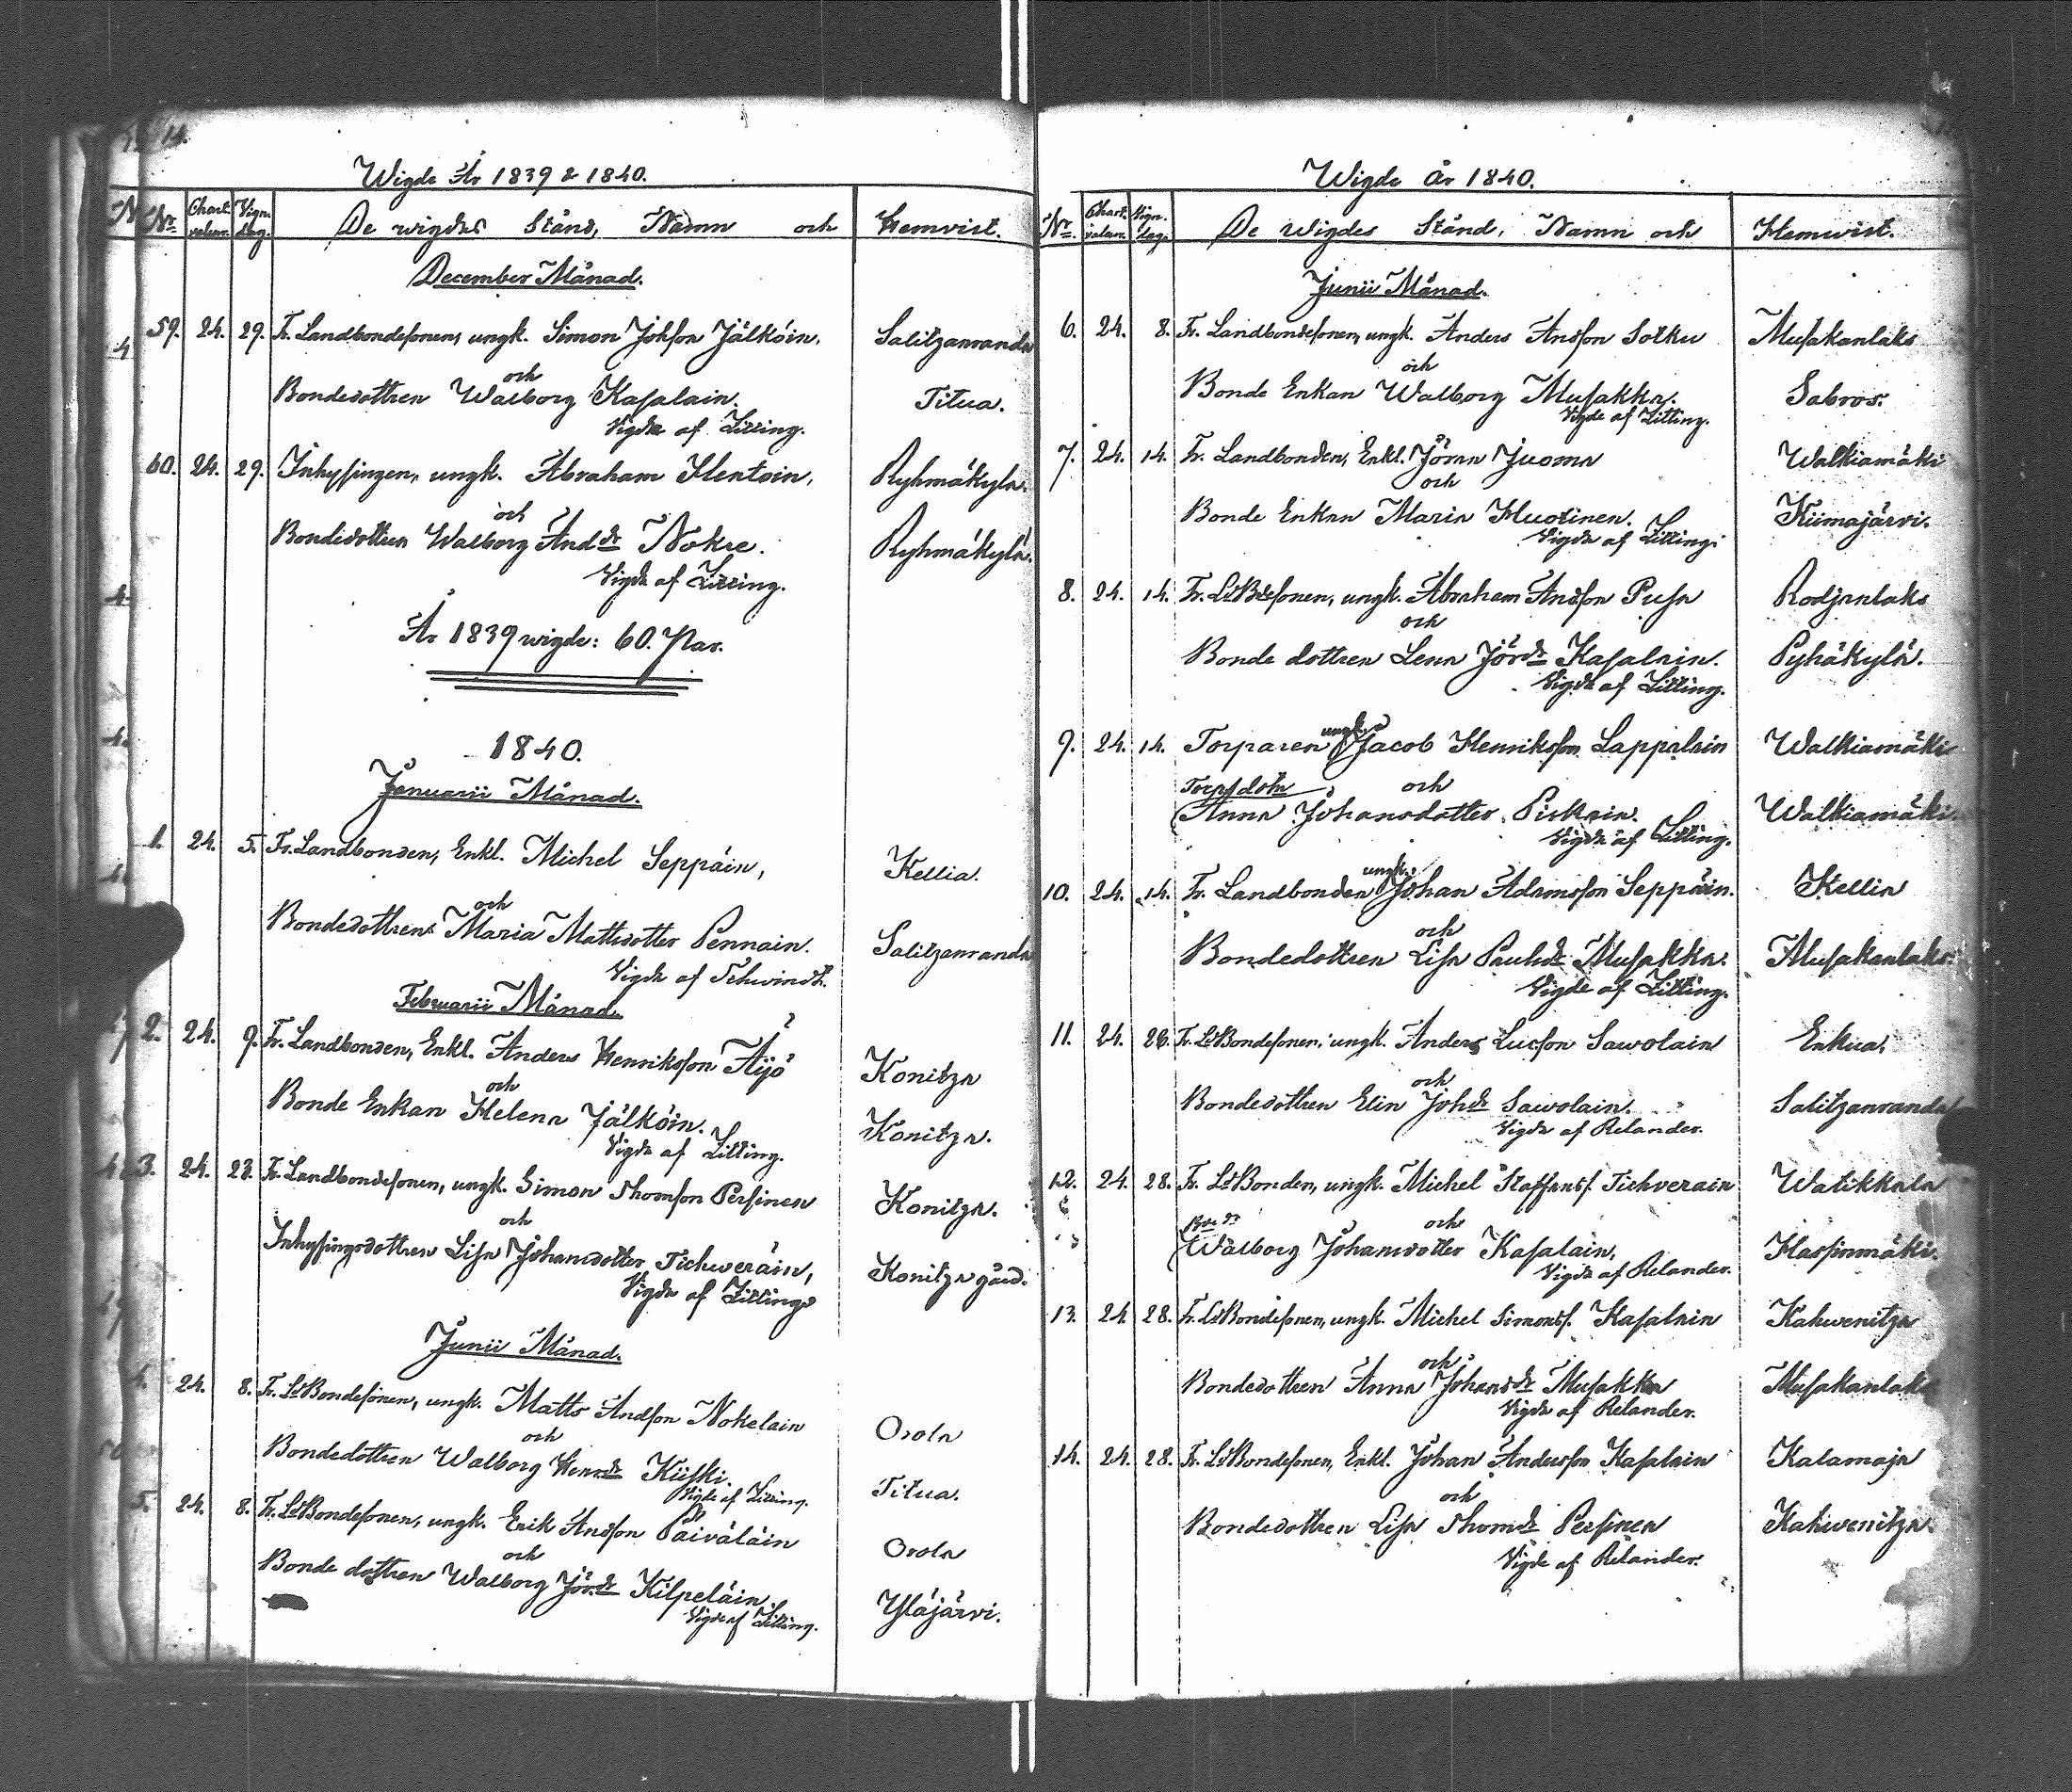 14.
Wigde År 1839 & 1840.
Nr. Chart. valum. Vign. dag. De wigdes Stånd, Namn och Hemvist.
December Månad.
59. 24. 29. Fr. Landbondesonen, ungk. Simon Johsson Jälköin, Salitzanranda
och
Bondedottren Walborg Kasalain. Titua.
Vigde af Zitting.
60. 24. 29. Inhysingen, ungk. Abraham Hentoin, Ryhmäkylä.
och
Bondedottren Walborg Andsdr Nokre. Ryhmäkylä.
Vigde af Zitting.
År 1839 wigde: 60. Par.
1840.
Januarii Månad.
1. 24. 5. Fr. Landbonden, Enkl. Michel Seppäin, Kellia.
och
Bondedottren Maria Mattsdotter Pennain. Salitzanranda
Vigde af Schwindt.
Februarii Månad.
2. 24. 9. Fr. Landbonden, Enkl. Anders Henriksson Äijö Konitza
och
Bonde Enkan Helena Jälköin. Konitza.
Vigde af Zitting.
3. 24. 23. Fr. Landbondesonen, ungk. Simon Thomson Persinen Konitza.
och
Inhysingsdottren Lisa Johansdotter Tichweräin, Konitza gård.
Vigde af Zitting
Junii Månad.
4. 24. 8. Fr. LdBondesonen, ungk. Matts Andsson Nokelain Orola
och
Bondedottren Walborg Henrdr Kiiski. Titua.
Vigde af Zitting.
5. 24. 8. Fr. LdBondesonen, ungk. Erik Andsson Päiväläin Orola
och
Bonde dottren Walborg Jördr Kilpeläin. Yläjärvi.
Vigde af Zitting.
Wigde år 1840.
Nr. Chart. valum. Vign. dag. De wigdes Stånd, Namn och Hemwist.
Junii Månad.
6. 24. 8. Fr. Landbondesonen, ungk. Anders Andsson Sotku Musakanlaks
och
Bonde Enkan Walborg Musakka. Sabros.
Vigde af Zitting.
7. 24. 14. Fr. Landbonden, Enkl. Jöran Juoma Walkiamäki
och
Bonde Enkan Maria Huotinen. Kiimajärvi.
Vigde af Zitting.
8. 24. 14. Fr. LdBdesonen, ungk. Abraham Andsson Pusa Rodjanlaks
och
Bonde dottren Lena Jördr Kasalain. Pyhäkylä.
Vigde af Zitting.
9. 24. 14. Torparen ungk. Jacob Henriksson Lappalain Walkiamäki
Torpsdotn och
Anna Johansdotter Pirkain. Walkiamäki.
Vigde af Zitting.
10. 24. 14. Fr. Landbonden ungk. Johan Adamsson Seppäin. Kellia
och
Bondedottren Lisa Paulsdr Musakka. Musakanlaks.
Vigde af Zitting.
11. 24. 26. Fr. LdBondesonen, ungk. Anders Lucson Sawolain Enkua.
och
Bondedottren Elin Johdr Sawolain. Salitzanranda
Vigde af Relander.
12. 24. 28. Fr. LdBonden, ungk. Michel Staffansf. Tichverain Watikkala
Bdedr och
Walborg Johansdotter Kasalain, Harsinmäki.
Vigde af Relander.
13. 24. 28. Fr. LdBondesonen, ungk. Michel Simonsf. Kasalain Kahwenitza
och
Bondedottren Anna Johansdr Musakka Musakanlaks
Vigde af Relander.
14. 24. 28. Fr. LdBondesonen, Enkl. Johan Andersson Kasalain Kalamaja
och
Bondedottren Lisa Thomdr Persinen Kahwenitza.
Vigde af Relander.